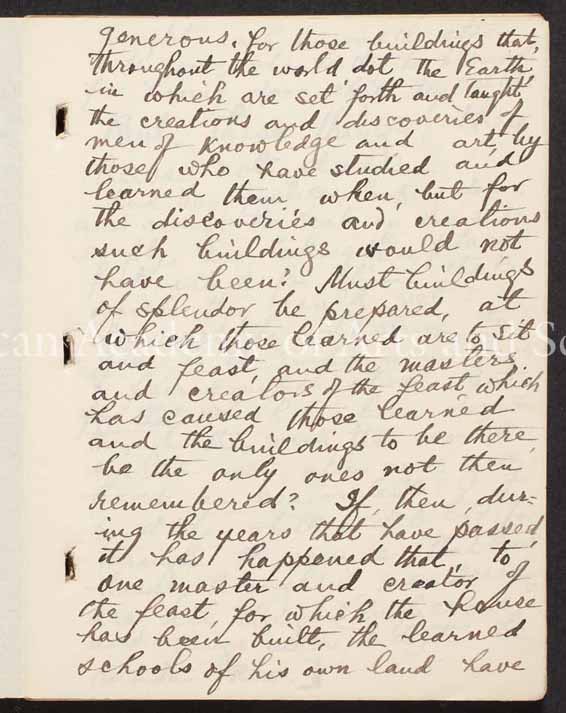 generous, for those buildings that,
throughout the world dot the Earth,
in which are set forth and taught
the creations and discoveries of
men of knowledge and art, by
those who have studied and
learned them, when, but for
the discoveries and creations
such buildings would not
have been? Must buildings
of splendor be prepared, at
which those learned are to sit
and feast, and the masters
and creators of the feast which
has caused those learned
and the buildings to be there,
be the only ones not then
remembered? If, then, dur-
ing the years that have passed,
it has happened that, to
one master and creator of
the feast, for which the house
has been built, the learned
schools of his own land have
can Academy of Arts and Sc